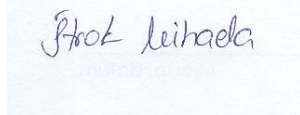 Štrok Mihaela